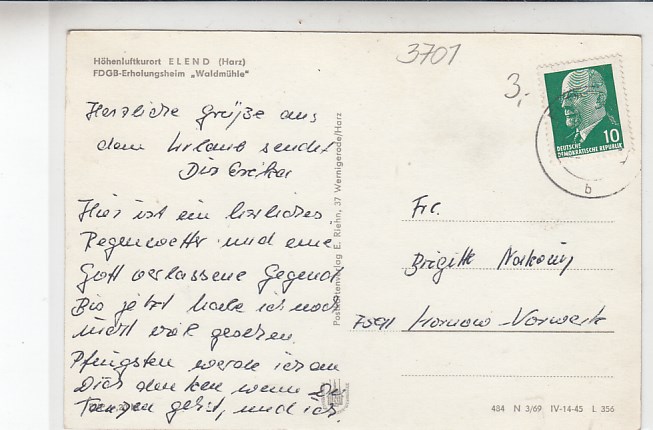 Höhenluftkurort ELEND (Harz)
FDGB-Erholungsheim „Waldmühle"
3701
3,-
DEUTSCHE
DEMOKRATISCHE REPUBLIK
10
b
Herzliche Grüße aus
dem Urlaub sendet
Dir Erika
Hier ist ein herrliches
Regenwetter und eine
Gott verlassene Gegend
Bis jetzt habe ich noch
nicht viel gesehen.
Pfingsten werde ich an
Dich denken wenn Du
Tanzen gehst, und ich
Postkartenverlag E. Riehn, 37 Wernigerode/Harz
Frl.
Brigitt
Hornow-Vorwerk
484 N 3/69 IV-14-45 L 356